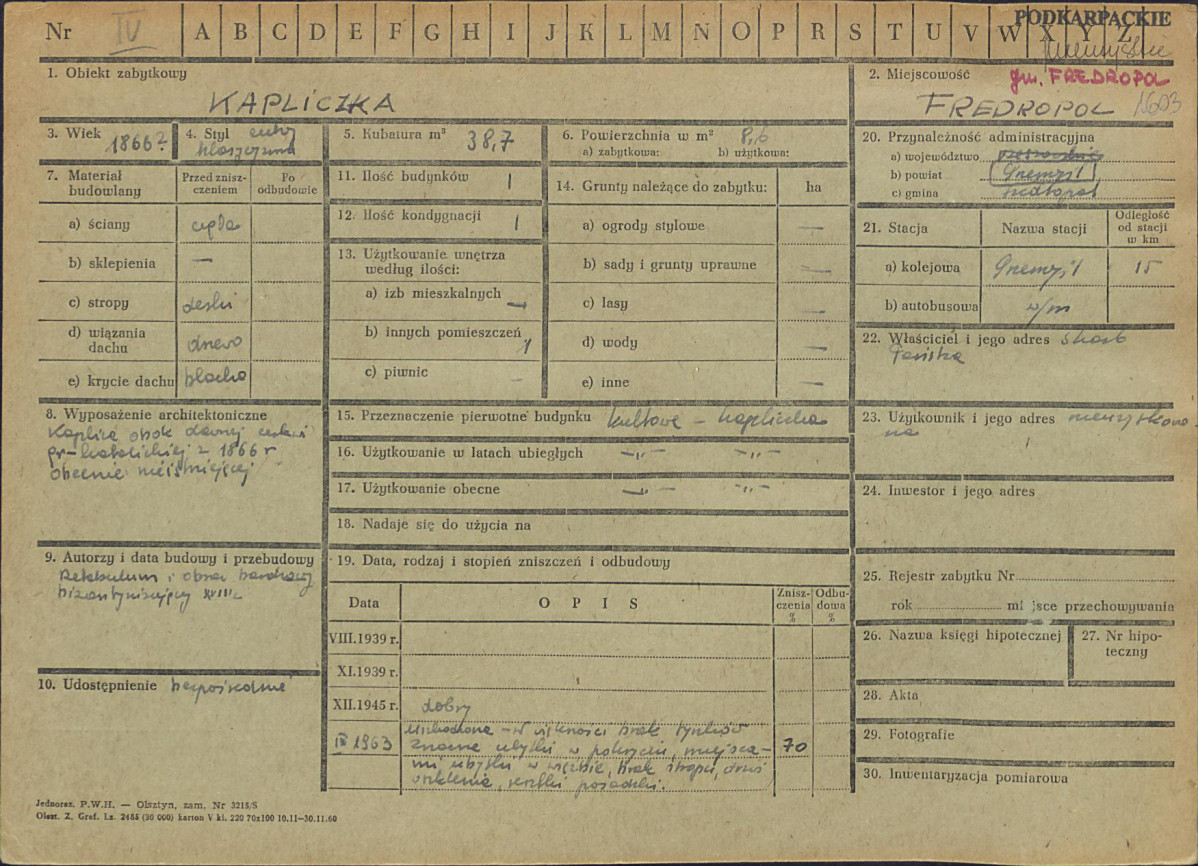 Nr IV A B C D E F G H I J K L M N O P R S T U V W X Y Z
PODKARPACKIE
gm. FREDROPOL
1. Obiekt zabytkowy
KAPLICZKA
2. Miejscowość
FREDROPOL 1603
3. Wiek 1866?
4. Styl
5. Kubatura m³ 38,7
6. Powierzchnia w m² 8,6
a) zabytkowa: b) użytkowa:
7. Materiał budowlany
Przed zniszczeniem
Po odbudowie
a) ściany cegła
b) sklepienia —
c) stropy deski
d) wiązania dachu drewo
e) krycie dachu blacha
8. Wyposażenie architektoniczne
Kaplica obok dawnej cerkwi
gr-katolickiej z 1866 r
obecnie nieistniejącej
9. Autorzy i data budowy i przebudowy
Retabulum i obraz barokowy
bizantynizujący XVIII w
10. Udostępnienie bezpośrednie
11. Ilość budynków 1
12. Ilość kondygnacji 1
13. Użytkowanie wnętrza
według ilości:
a) izb mieszkalnych —
b) innych pomieszczeń 1
c) piwnic —
14. Grunty należące do zabytku: ha
a) ogrody stylowe —
b) sady i grunty uprawne —
c) lasy —
d) wody —
e) inne —
15. Przeznaczenie pierwotne budynku kultowe – kapliczka
16. Użytkowanie w latach ubiegłych –„– –„–
17. Użytkowanie obecne –„– –„–
18. Nadaje się do użycia na
19. Data, rodzaj i stopień zniszczeń i odbudowy
Data OPIS Zniszczenia % Odbudowa %
VIII.1939 r.
XI.1939 r.
XII.1945 r. dobry
IX 1963 uszkodzona – w większości brak tynków
znaczne ubytki w pokryciu, miejsca- 70
mi ubytki w więźbie, brak stropu, drzwi
oszklenia, resztki posadzki.
20. Przynależność administracyjna
a) województwo rzeszowskie
b) powiat Przemyśl
c) gmina Fredropol
21. Stacja
Nazwa stacji
Odległość od stacji w km
a) kolejowa Przemyśl 15
b) autobusowa w/m
22. Właściciel i jego adres Skarb
Państwa
23. Użytkownik i jego adres nieużytkowa-
na
24. Inwestor i jego adres
25. Rejestr zabytku Nr
rok mi jsce przechowywania
26. Nazwa księgi hipotecznej
27. Nr hipoteczny
28. Akta
29. Fotografie
30. Inwentaryzacja pomiarowa
Jednoraz. P.W.H. — Olsztyn, zam. Nr 3215/S
Olszt. Z. Graf. Lz. 2455 (30 000) karton V kl. 220 70x100 10.11—30.11.60